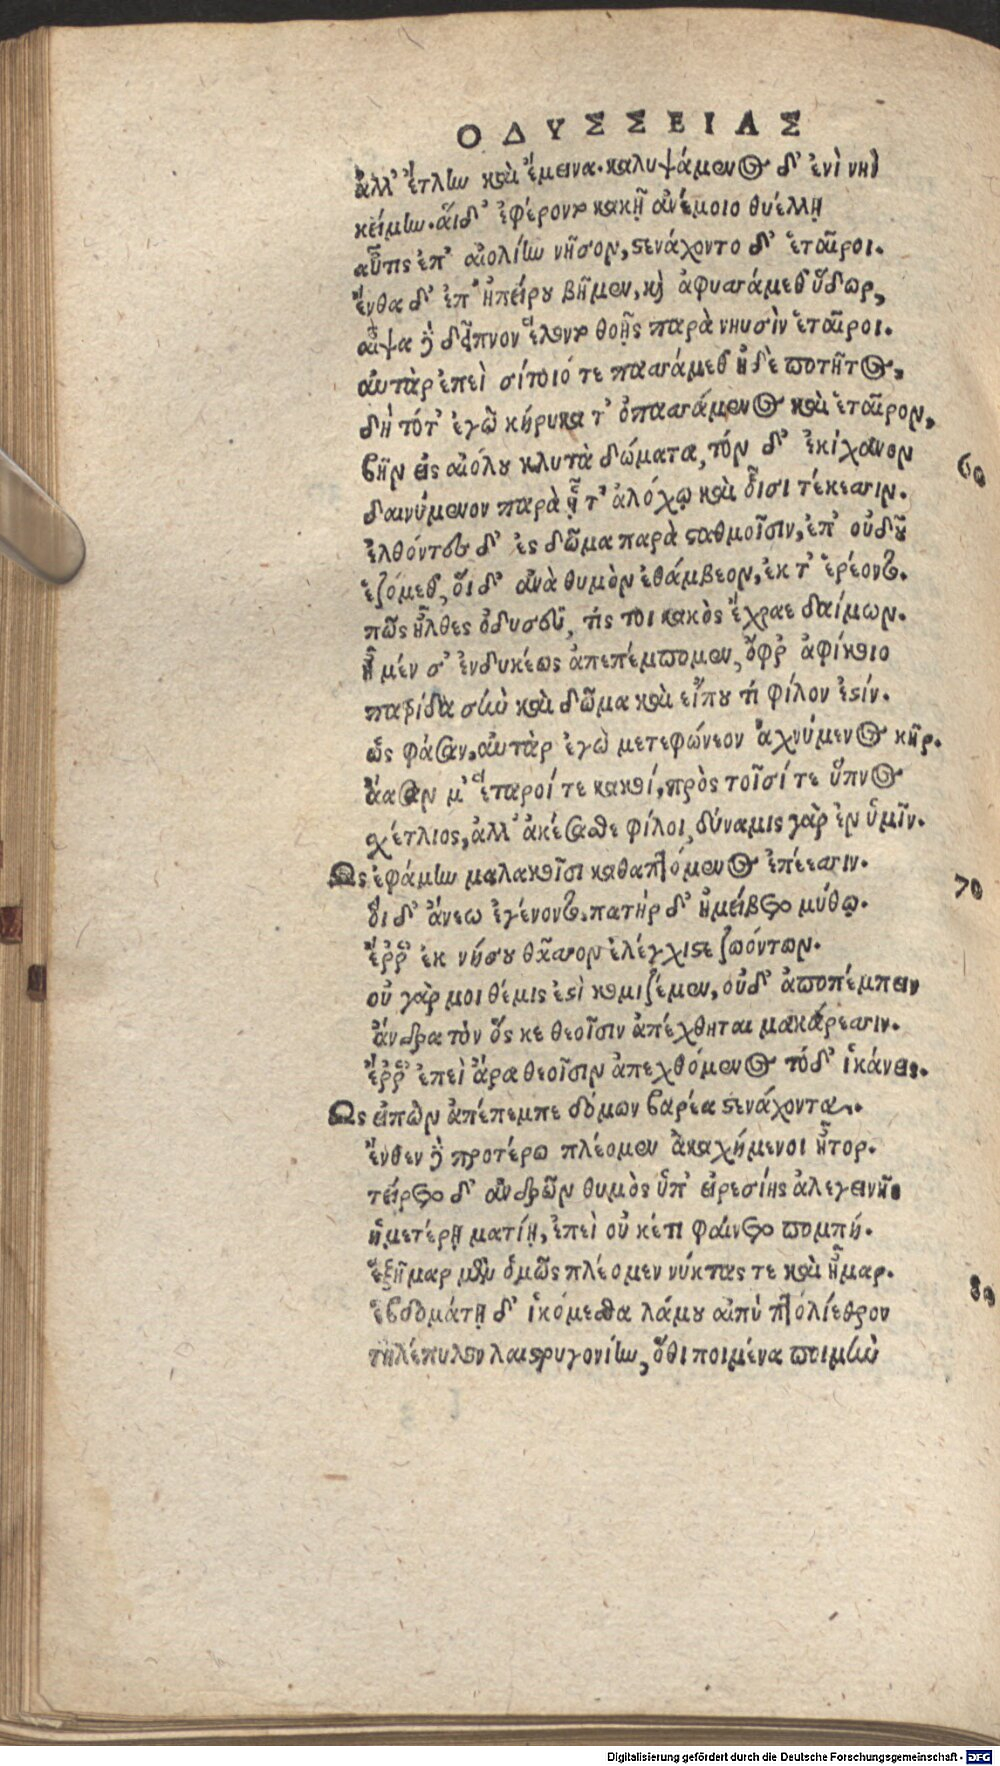 ΟΔΥΣΣΕΙΑΣ
ἀλλ' ἔτλην καὶ ἔμεινα. καλυψάμενος δ' ἐνὶ νηὶ
κείμην. αἱ δ' ἐφέροντο κακῇ ἀνέμοιο θυέλλῃ
αὖτις ἐπ' αἰολίην νῆσον, στενάχοντο δ' ἑταῖροι.
ἔνθα δ' ἐπ' ἠπείρου βῆμεν, καὶ ἀφυσάμεθ' ὕδωρ,
αἶψα δὲ δεῖπνον ἕλοντο θοῇς παρὰ νηυσὶν ἑταῖροι.
αὐτὰρ ἐπεὶ σίτοιό τε πασάμεθ' ἠδὲ ποτῆτος,
δὴ τότ' ἐγὼ κήρυκα τ' ὀπασάμενος καὶ ἑταῖρον,
βῆν εἰς αἰόλου κλυτὰ δώματα, τὸν δ' ἐκίχανον
60
δαινύμενον παρὰ ᾗ τ' ἀλόχῳ καὶ οἷσι τέκεσιν.
ἐλθόντες δ' ἐς δῶμα παρὰ σταθμοῖσιν, ἐπ' οὐδοῦ
ἑζόμεθ', οἱ δ' ἀνὰ θυμὸν ἐθάμβεον, ἔκ τ' ἐρέοντο.
πῶς ἦλθες ὀδυσεῦ, τίς τοι κακὸς ἔχραε δαίμων.
ἦ μέν σ' ἐνδυκέως ἀπεπέμπομεν, ὄφρ' ἀφίκοιο
πατρίδα σὴν καὶ δῶμα καὶ εἴπου τι φίλον ἐστίν.
ὣς φάσαν, αὐτὰρ ἐγὼ μετεφώνεον ἀχνύμενος κῆρ.
ἄασαν μ' ἕταροί τε κακοί, πρὸς τοῖσί τε ὕπνος
σχέτλιος, ἀλλ' ἀκέσασθε φίλοι, δύναμις γὰρ ἐν ὑμῖν.
Ὣς ἐφάμην μαλακοῖσι καθαπτόμενος ἐπέεσιν.
70
οἱ δ' ἄνεω ἐγένοντο. πατὴρ δ' ἠμείβετο μύθῳ.
ἔρρ' ἐκ νήσου θᾶσσον ἐλέγχιστε ζωόντων.
οὐ γάρ μοι θέμις ἐστὶ κομιζέμεν, οὐδ' ἀποπέμπειν
ἄνδρα τὸν ὅς κε θεοῖσιν ἀπέχθηται μακάρεσιν.
ἔρρ' ἐπεὶ ἄρα θεοῖσιν ἀπεχθόμενος τόδ' ἱκάνεις.
Ὣς εἰπὼν ἀπέπεμπε δόμων βαρέα στενάχοντα.
ἔνθεν δὲ προτέρω πλέομεν ἀκαχήμενοι ἦτορ.
τείρετο δ' ἀνδρῶν θυμὸς ὑπ' εἰρεσίης ἀλεγεινῆς
ἡμετέρῃ ματίῃ, ἐπεὶ οὐκέτι φαίνετο πομπή.
ἑξῆμαρ μὲν ὁμῶς πλέομεν νύκτας τε καὶ ἦμαρ.
80
ἑβδομάτῃ δ' ἱκόμεσθα λάμου αἰπὺ πτολίεθρον
τηλέπυλον λαιστρυγονίην, ὅθι ποιμένα ποιμὴν
Digitalisierung gefördert durch die Deutsche Forschungsgemeinschaft - DFG